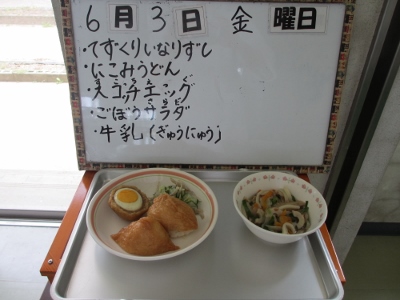 6月3日 金曜日
・てずくりいなりずし
・にこみうどん
・スコッチエッグ
・ごぼうサラダ
・牛乳(ぎゅうにゅう)